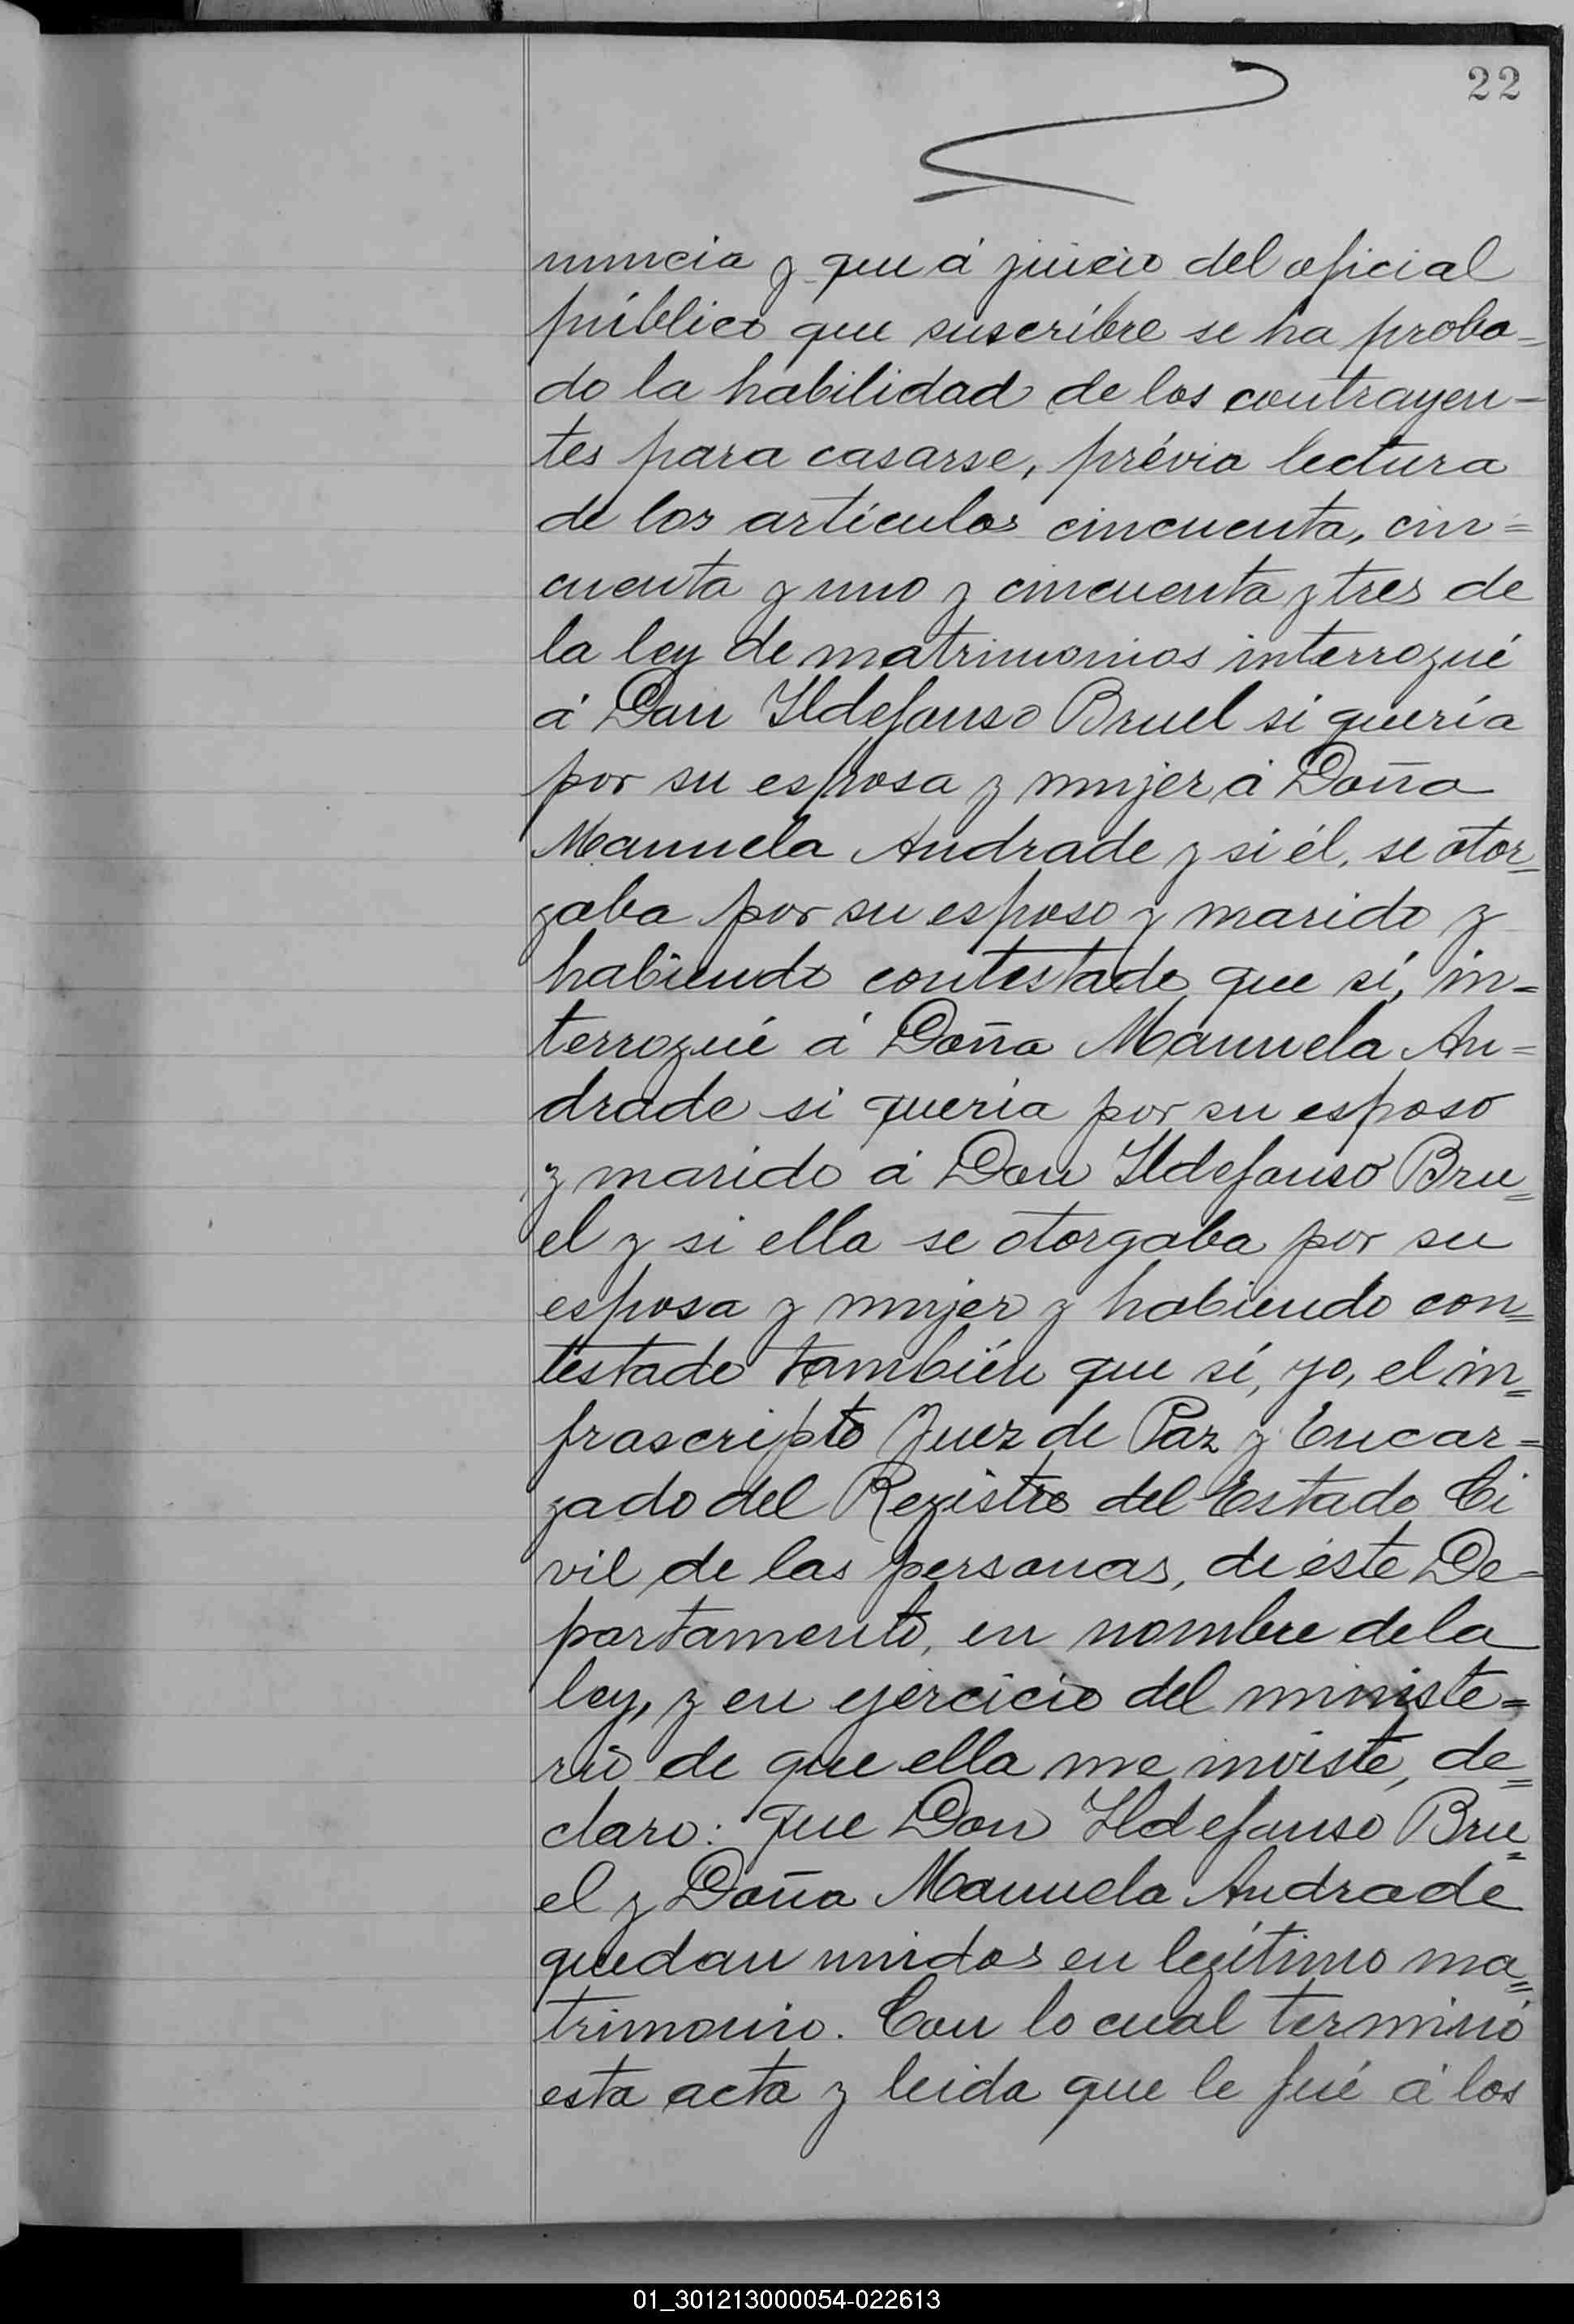 22
nuncia y que á juicio del oficial
público que suscribre se ha proba=
do la habilidad de los contrayen-
tes para casarse, prévia lectura
de los artículos cincuenta, cin=
cuenta y uno y cincuenta y tres de
la ley de matrimonios interrogué
á Don Ildefonso Bruel si quería
por su esposa y mujer á Doña
Manuela Andrade y si él, se otor=
gaba por su esposo y marido y
habiendo contestado que sí, in=
terrogué á Doña Manuela An=
drade si quería por su esposo
y marido á Don Ildefonso Bru=
el y si ella se otorgaba por su
esposa y mujer y habiendo con=
testado también que sí, yo, el in=
frascripto Juez de Paz y Encar=
gado del Registro del Estado Ci
vil de las personas, de éste De=
partamento, en nombre de la
ley, y en ejercicio del ministe=
rio de que ella me inviste, de=
claro: que Don Ildefonso Bru=
el y Doña Manuela Andrade
quedan unidos en legítimo ma=
trimonio. Con lo cual terminó
esta acta y leida que le fué á los
01_301213000054-022613